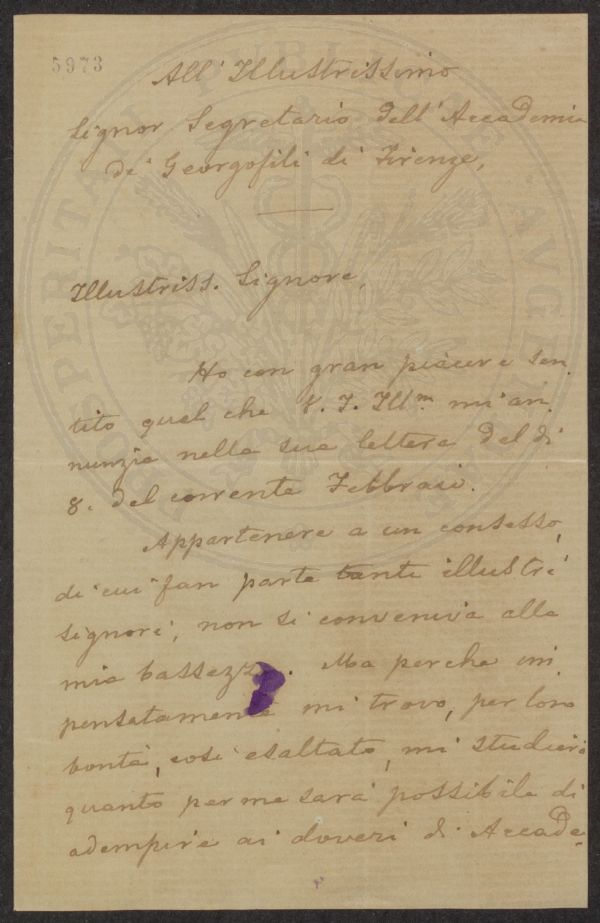 5973
All' Illustrissimo
Signor Segretario dell' Accademia
de' Georgofili di Firenze,
Illustriss. Signore,
Ho con gran piacere sen
tito quel che V. S. Illm. mi an
nunzia nella sua lettera del dì
8. del corrente Febbraio.
Appartenere a un consesso,
di cui fan parte tanti illustri
signori, non si conveniva alla
mia bassezza. Ma perchè im
pensatamente mi trovo, per loro
bontà, così esaltato, mi studierò
quanto per me sarà possibile di
adempire ai doveri di Accade,
PROSPERITATI PUBLICAE AUGENDAE